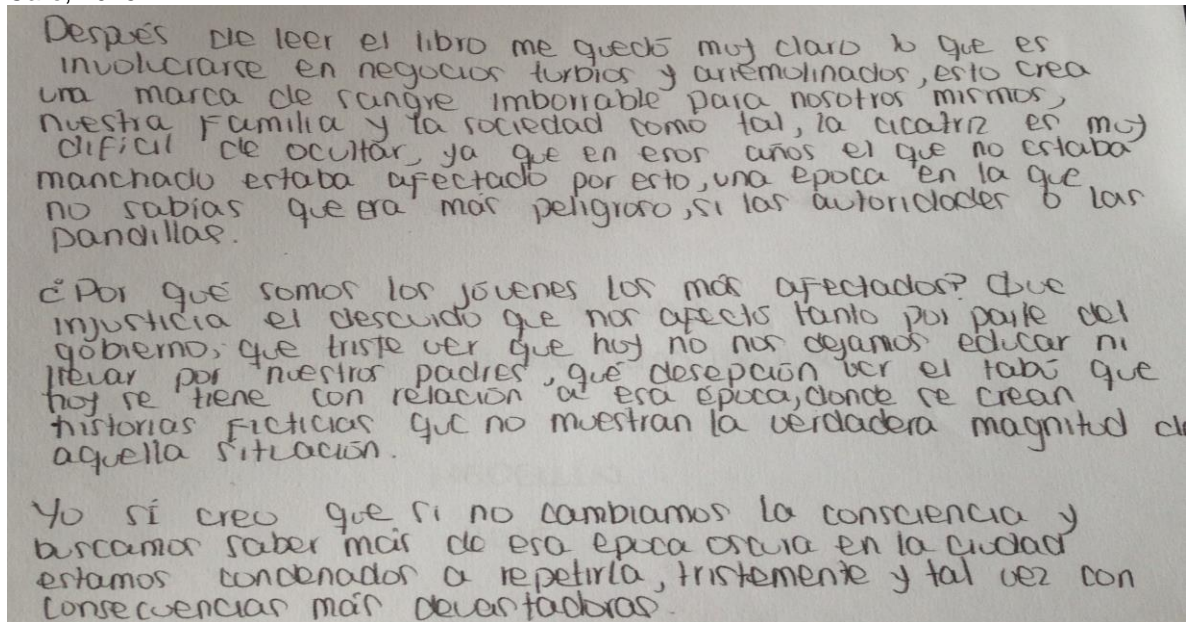 Después de leer el libro me quedó muy claro lo que es
involucrarse en negocios turbios y arremolinados, esto crea
una marca de sangre imborrable para nosotros mismos,
nuestra familia y la sociedad como tal, la cicatriz es muy
dificil de ocultar, ya que en esos años el que no estaba
manchado estaba afectado por esto, una epoca en la que
no sabías que era más peligroso, si las autoridades o las
pandillas.
¿Por qué somos los jóvenes los más afectados? Que
injusticia el descuido que nos afectó tanto por parte del
gobierno, que triste ver que hoy no nos dejamos educar ni
llevar por nuestros padres, qué desepción ver el tabú que
hoy se tiene con relación a esa época, donde se crean
historias ficticias que no muestran la verdadera magnitud de
aquella situación.
Yo sí creo que si no cambiamos la consciencia y
buscamos saber más de esa epoca oscura en la ciudad
estamos condenados a repetirla, tristemente y tal vez con
consecuencias más devastadoras.